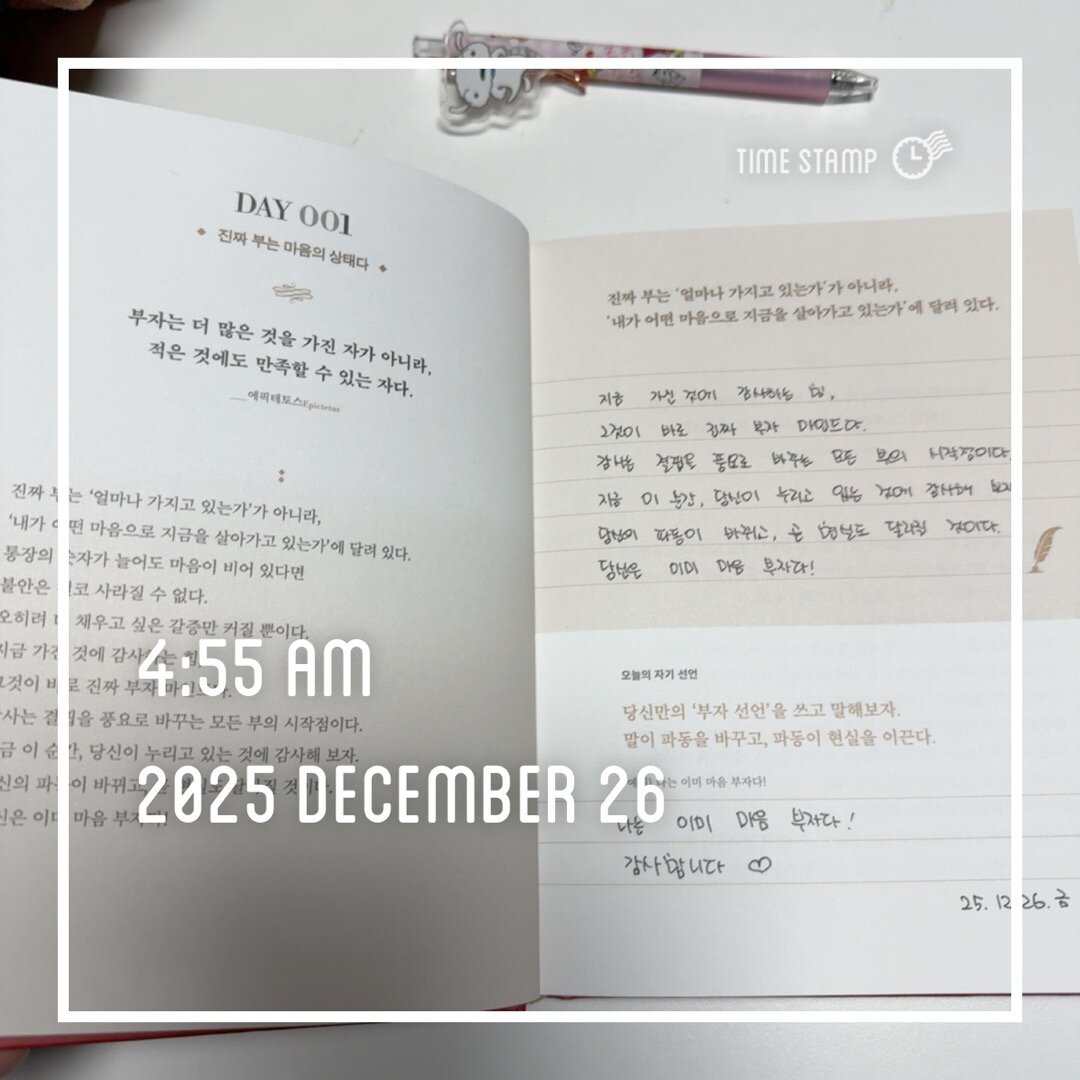 TIME STAMP
DAY 001
진짜 부는 마음의 상태다
부자는 더 많은 것을 가진 자가 아니라,
적은 것에도 만족할 수 있는 자다.
에픽테토스Epictetus
진짜 부는 '얼마나 가지고 있는가'가 아니라,
'내가 어떤 마음으로 지금을 살아가고 있는가'에 달려 있다.
통장의 숫자가 늘어도 마음이 비어 있다면
불안은 결코 사라질 수 없다.
오히려 더 채우고 싶은 갈증만 커질 뿐이다.
지금 가진 것에 감사하는 힘,
그것이 바로 진짜 부자 마인드다.
감사는 결핍을 풍요로 바꾸는 모든 부의 시작점이다.
지금 이 순간, 당신이 누리고 있는 것에 감사해 보자.
당신의 파동이 바뀌고, 곧 현실도 달라질 것이다.
당신은 이미 마음 부자다!
4:55 AM
2025 DECEMBER 26
진짜 부는 '얼마나 가지고 있는가'가 아니라,
'내가 어떤 마음으로 지금을 살아가고 있는가'에 달려 있다.
지금 가진 것에 감사하는 힘,
그것이 바로 진짜 부자 마인드다.
감사는 결핍을 풍요로 바꾸는 모든 부의 시작점이다.
지금 이 순간, 당신이 누리고 있는 것에 감사해 보자
당신의 파동이 바뀌고, 곧 현실도 달라질 것이다.
당신은 이미 마음 부자다!
오늘의 자기 선언
당신만의 '부자 선언'을 쓰고 말해보자.
말이 파동을 바꾸고, 파동이 현실을 이끈다.
예시) 나는 이미 마음 부자다!
나는 이미 마음 부자다!
감사합니다 ♡
25. 12. 26. 금